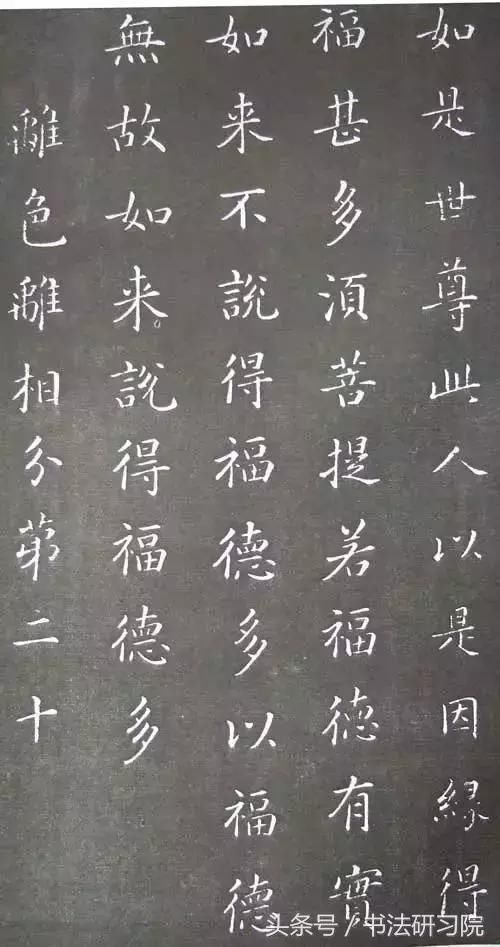 如是世尊此人以是因緣得
福甚多須菩提若福德有實
如来不說得福德多以福德
無故如来說得福德多
離色離相分第二十
头条号/书法研习院